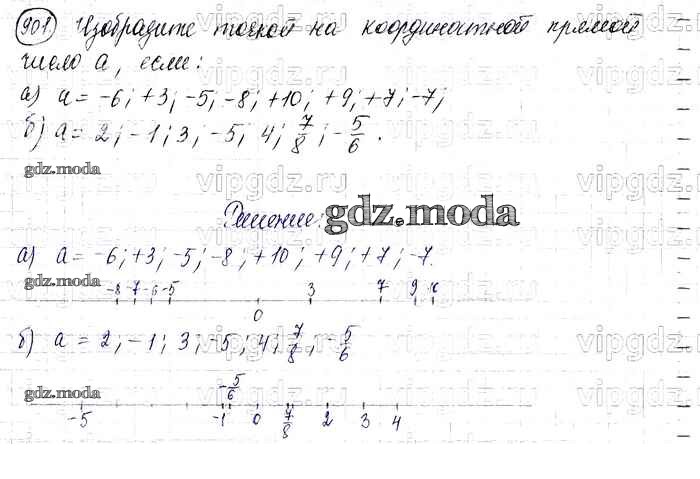 901. Изобразите точкой на координатной прямой
число a, если:
а) a = -6; +3; -5; -8; +10; +9; +7; -7;
б) a = 2; -1; 3; -5; 4; 7/8; -5/6.
gdz.moda
vipgdz.ru
Решение:
gdz.moda
а) a = -6; +3; -5; -8; +10; +9; +7; -7.
gdz.moda
-8 -7 -6 -5 0 3 7 9 10
б) a = 2; -1; 3; -5; 4; 7/8; -5/6
gdz.moda
-5/6
-5 -1 0 7/8 2 3 4